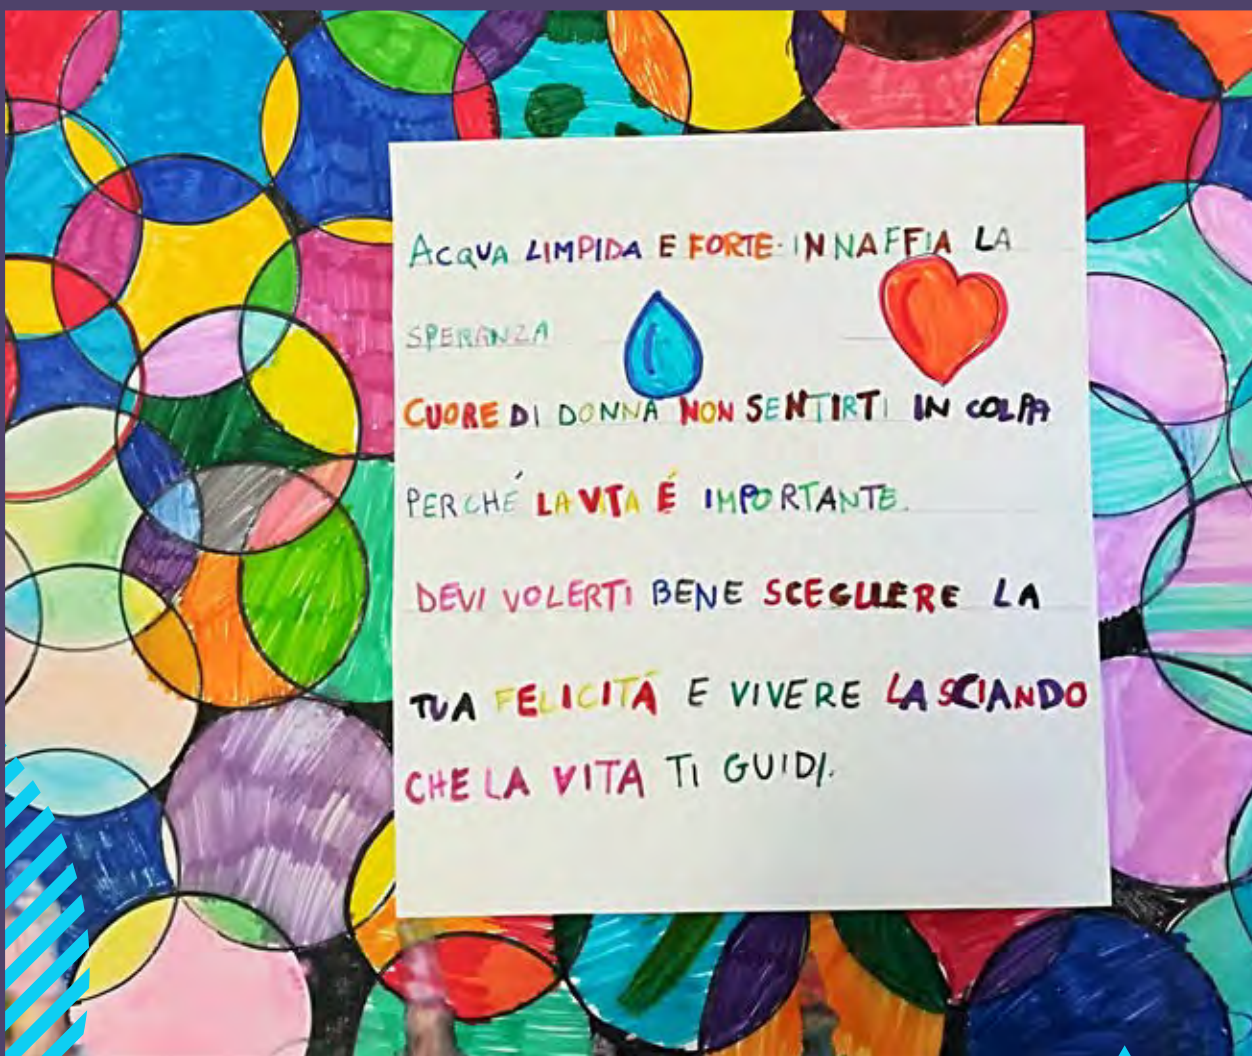 ACQUA LIMPIDA E FORTE INNAFFIA LA
SPERANZA
CUORE DI DONNA NON SENTIRTI IN COLPA
PERCHÉ LA VITA É IMPORTANTE.
DEVI VOLERTI BENE SCEGLIERE LA
TUA FELICITÁ E VIVERE LASCIANDO
CHE LA VITA TI GUIDI.